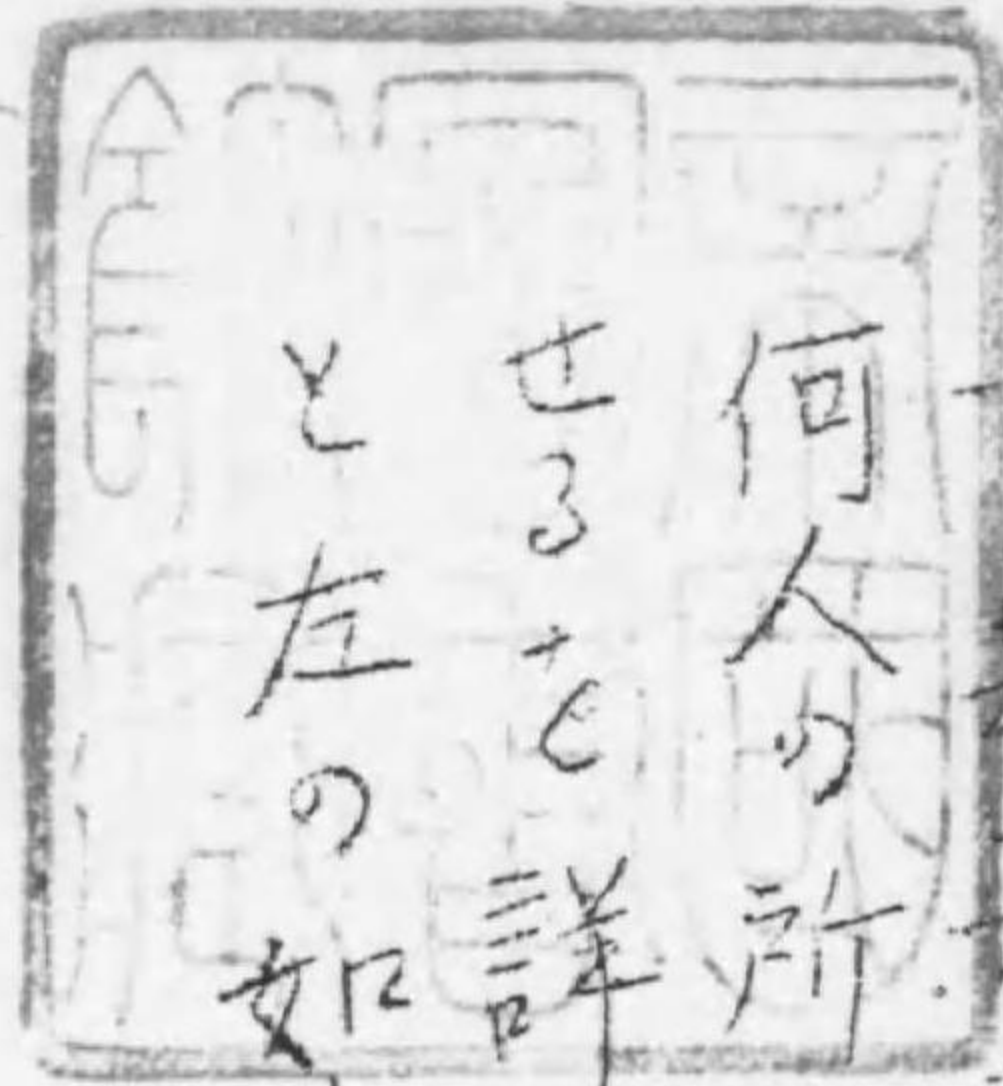 何人の所
せるを詳
と左の如